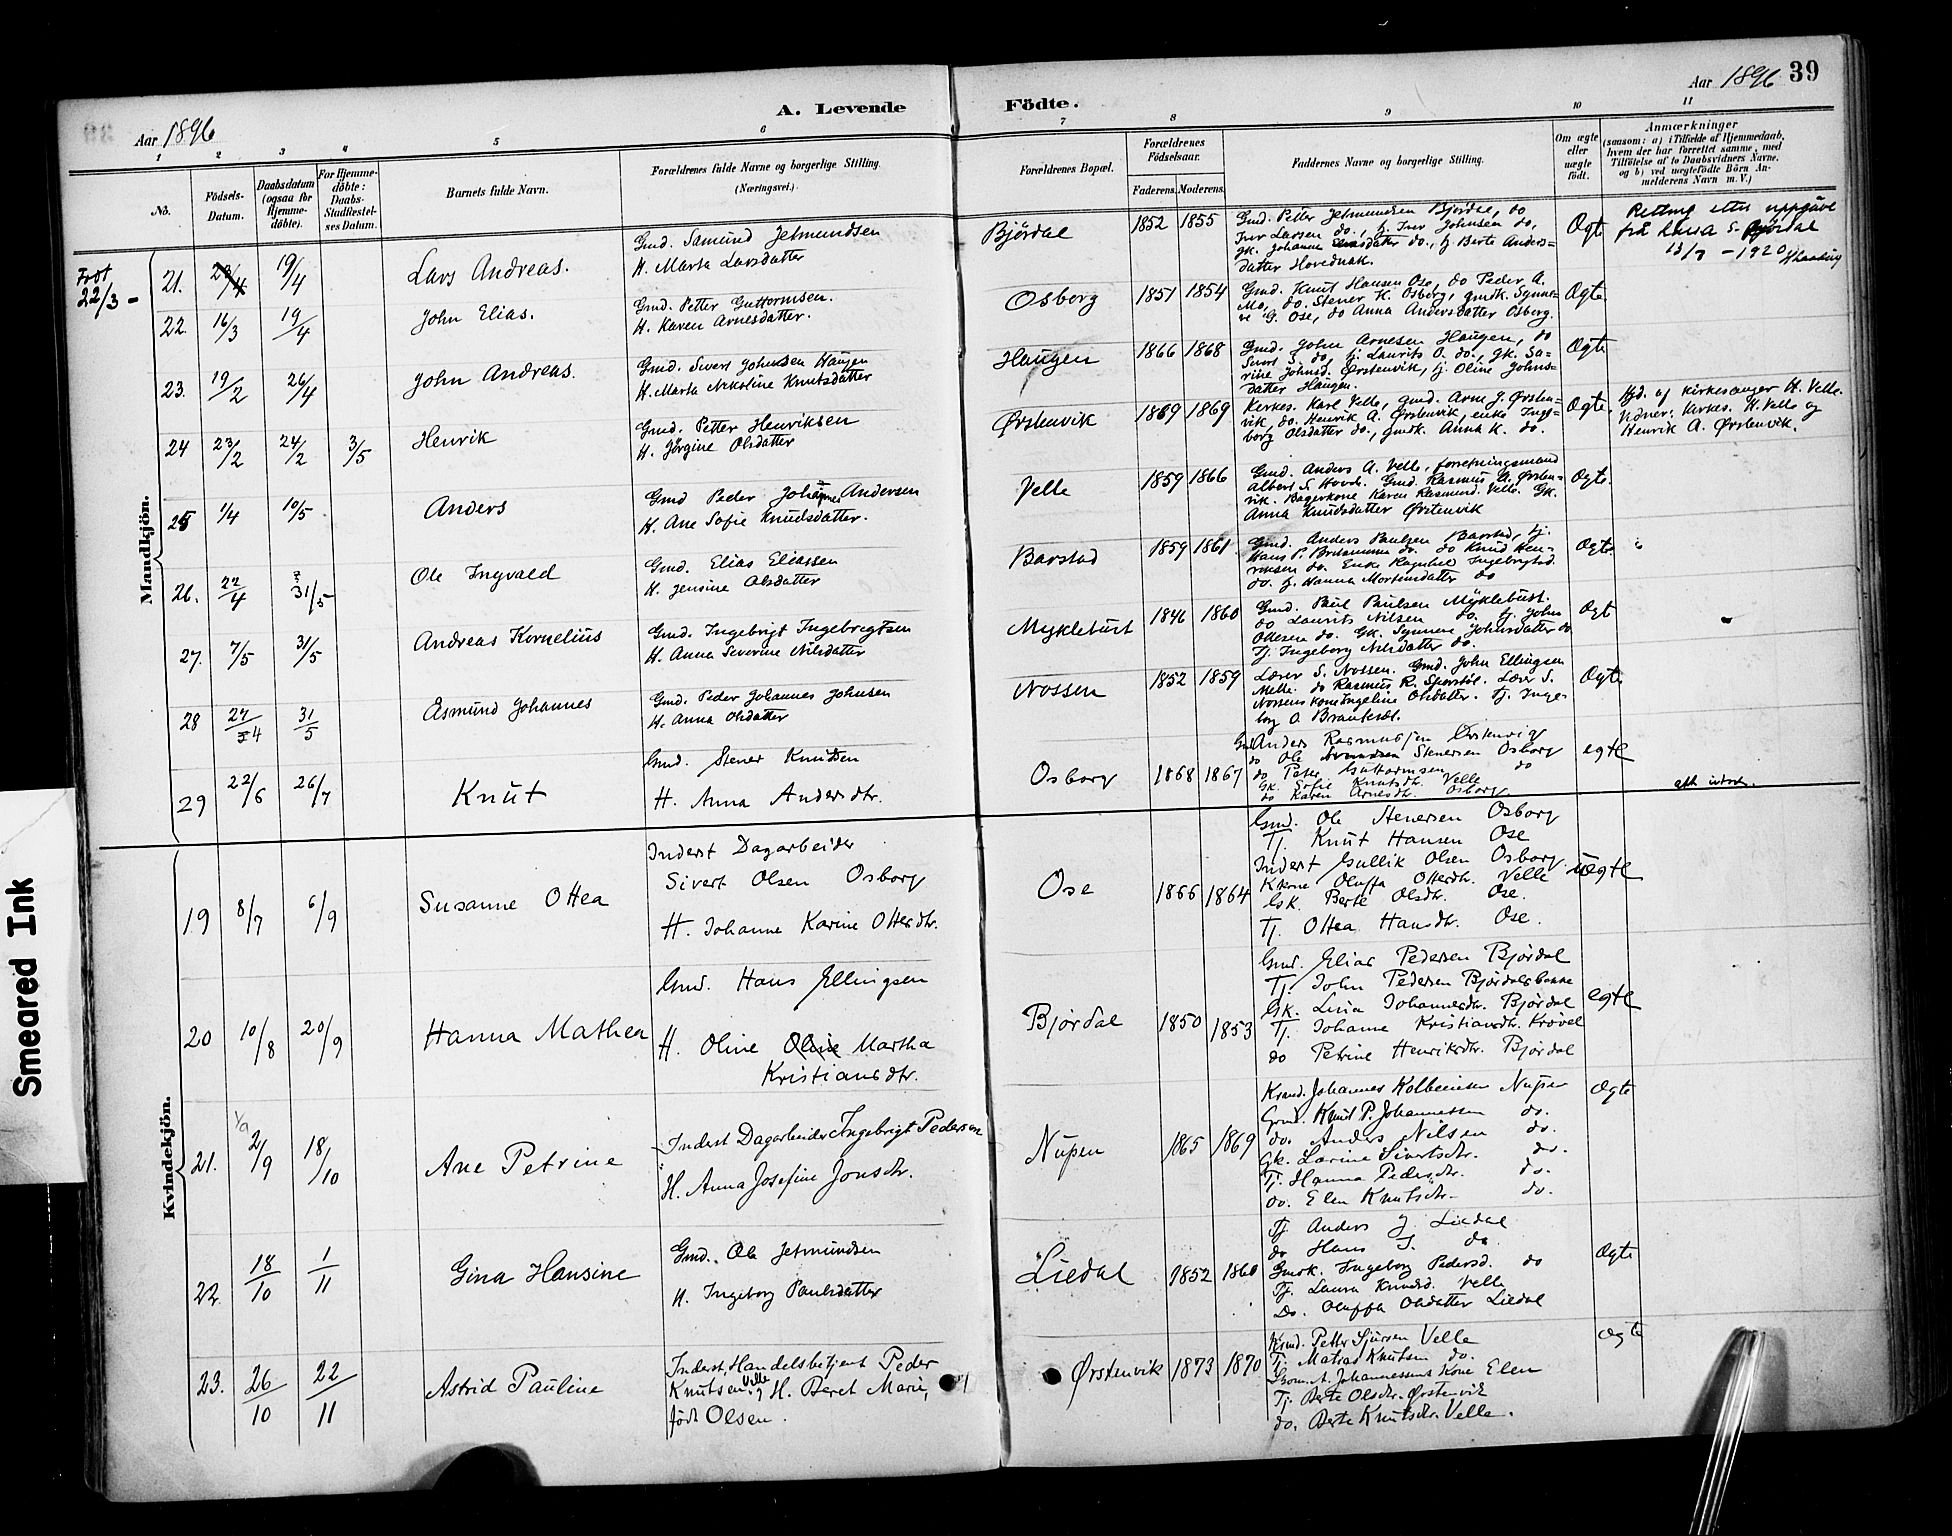 Aar 1896
A. Levende
Födte.
Aar 1896 39
1 2 3 4 5 6 7 8 9 10 11
No.
Födsels-
Datum.
Daabsdatum
(ogsaa for
Hjemme-
döbte).
For Hjemme-
döbte:
Daabs-
Stadfæstel-
ses Datum.
Barnets fulde Navn.
Forældrenes fulde Navne og borgerlige Stilling.
(Næringsvei.)
Forældrenes Bopæl.
Forældrenes
Födselsaar.
Faderens. Moderens.
Faddernes Navne og borgerlige Stilling.
Om ægte
eller
uægte
födt.
Anmærkninger
(saasom: a) i Tilfælde af Hjemmedaab,
hvem der har forrettet samme, med
Tilföielse af to Daabsvidners Navne,
og b) ved uægtefödte Börn An-
melderens Navn m. V.)
Mandkjön.
Født
22/3 -
21. 23/4 19/4
Lars Andreas.
Gmd. Samund Jetmundsen
H. Marta Larsdatter
Björdal
1852 1855
Gmd. Petter Jetmundsen Björdal, do
Iver Larsen do., tj. Iver Johnsen do,
gk. Johanne Larsdatter do., tj. Berte Anders-
datter Hovednak.
Ægte
Retting etter uppgåve
frå Lina S. Bjørdal
13/7 - 1920
22. 16/3 19/4
John Elias.
Gmd. Petter Guttormsen.
H. Karen Arnesdatter.
Osborg
1851 1854
Gmd. Knut Hansen Ose, do Peder A.
Mo, do. Stener K. Osborg, gmdk. Synnø-
ve G. Ose, do Anna Andersdatter Osborg.
Ægte
23. 19/2 26/4
John Andreas.
Gmd. Sivert Johnsen Haugen
H. Marta Nikoline Knutsdatter
Haugen
1866 1868
Gmd. John Arnesen Haugen, do
Sivert S. do, tj. Laurits O. do., gk. Sa-
rine Johnsd. Ørstenvik, tj. Oline Johns-
datter Haugen.
Ægte
24 23/2 24/2 3/5
Henrik
Gmd. Petter Henriksen
H. Jørgine Olsdatter
Ørstenvik
1869 1869
Kirkes. Karl Velle, gmd. Arne J. Ørsten-
vik, do. Henrik A. Ørstenvik, enke Inge-
borg Olsdatter do., gmdk. Anna K. do.
Ægte
Hjd. af kirkesanger K. Velle.
Vidner: Kirkes. K. Velle og
Henrik A. Ørstenvik.
25 1/4 10/5
Anders
Gmd Peder Johannes Andersen
H. Ane Sofie Knudsdatter.
Velle
1859 1866
Gmd. Anders A. Velle, forretningsmand
Albert S. Hovde. Gmd. Rasmus A. Ørsten-
vik. Bagerkone Karen Rasmusd. Velle. Gk.
Anna Knudsdatter Ørstenvik
Ægte.
26. 22/4 31/5
Ole Ingvald
Gmd. Elias Eliassen
H. Jensine Olsdatter
Barstad
1859 1861
Gmd. Anders Paulsen Barstad, tj.
Hans P. do. do Knud Hen-
riksen do. Enke Ragnhild Ingebrigtsd.
do. tj. Hanna Mortensdatter do
Ægte.
27. 7/5 31/5
Andreas Kornelius
Gmd. Ingebrigt Ingebrigtsen
H. Anna Severine Nilsdatter
Myklebust
1846 1860
Gmd. Paul Paulsen Myklebust.
do Laurits Nilsen do. tj. John
Ottesen do. Gk. Synnøve Johnsdatter do
Tj. Ingeborg Nilsdatter do.
Ægt
28 24/4 31/5
Asmund Johannes
Gmd. Peder Johannes Johnsen
H. Anna Olsdatter
Nossen
1852 1859
Lærer S. Nossen. Gmd. John Ellingsen
Melle. do Rasmus R. Sporstøl. Lærer S.
Nossens kone Ingeline Olsdatter. tj. Inge-
borg O
Ægte
29 22/6 26/7
Knut
Gmd. Stener Knudsen
H. Anna Andersdtr.
Osborg
1868 1867
Gmd Anders Rasmussen Ørstenvig
do Ole Stenersen Osborg
do Peter Guttormsen do
Gk. Sofie Knutsdtr. Velle
do Karen Arnesdtr. Osborg
egte
Kvindekjön.
19 8/7 6/9
Susanne Ottea
Inderst Dagarbeider
Sivert Olsen Osborg
H. Johanne Karine Ottesdtr.
Ose
1866 1864
Gmd. Ole Stenersen Osborg
Tj. Knut Hansen Ose
Inderst Gullik Olsen Osborg
Oluffa Ottesdtr. Velle
Gk. Berte Olsdtr. Ose.
Tj. Ottea Hansdtr. Ose.
uegte
20 10/8 20/9
Hanna Mathea
Gmd. Hans Ellingsen
H. Oline Oline Martha
Kristiansdtr.
Bjørdal
1850 1853
Gmd. Elias Pedersen Bjørdal
Tj. John Pedersen Bjørdalsbakke
Gk. Lina Johannesdtr. Bjørdal
Tj. Johanne Kristiansdtr. Krøvel
do Petrine Henriksdtr. Bjørdal
egte
21. 1/9 2/9 18/10
Ane Petrine
Inderst Dagarbeider Ingebrigt Pedersen
H. Anna Josefine Jonsdtr.
Nupen
1865 1869
Johannes Kolbeinsen Nupen
Gmd. Knut P. Johannessen do.
do. Anders Nilsen do.
Gk. Larine Sivertsdtr. do.
Tj. Hanna Pedersdtr. do.
do. Elen Knutsdtr. do.
Ægte
22. 18/10 1/11
Gina Hansine
Gmd. Ole Jetmundsen
H. Ingeborg Paulsdatter
Liedal
1852 1860
Tj Anders J. Liedal
do Hans J. do
Gmdk. Ingeborg Pedersd. do
Tj. Laura Knudsd. Velle
Do. Oluffa Olsdatter Liedal
Ægte
23. 26/10 22/11
Astrid Pauline
Inderst, Handelsbetjent Peder
Knutsen Velle og H. Beret Marie,
født Olsen.
Ørstenvik
1873 1870
Petter Sjursen Velle
Tj. Matias Knutsen do.
Johannessens Kone Elen
Tj. Berte Olsdtr. Ørstenvik
do. Berte Knutsdtr. Velle.
Ægte
Smeared Ink